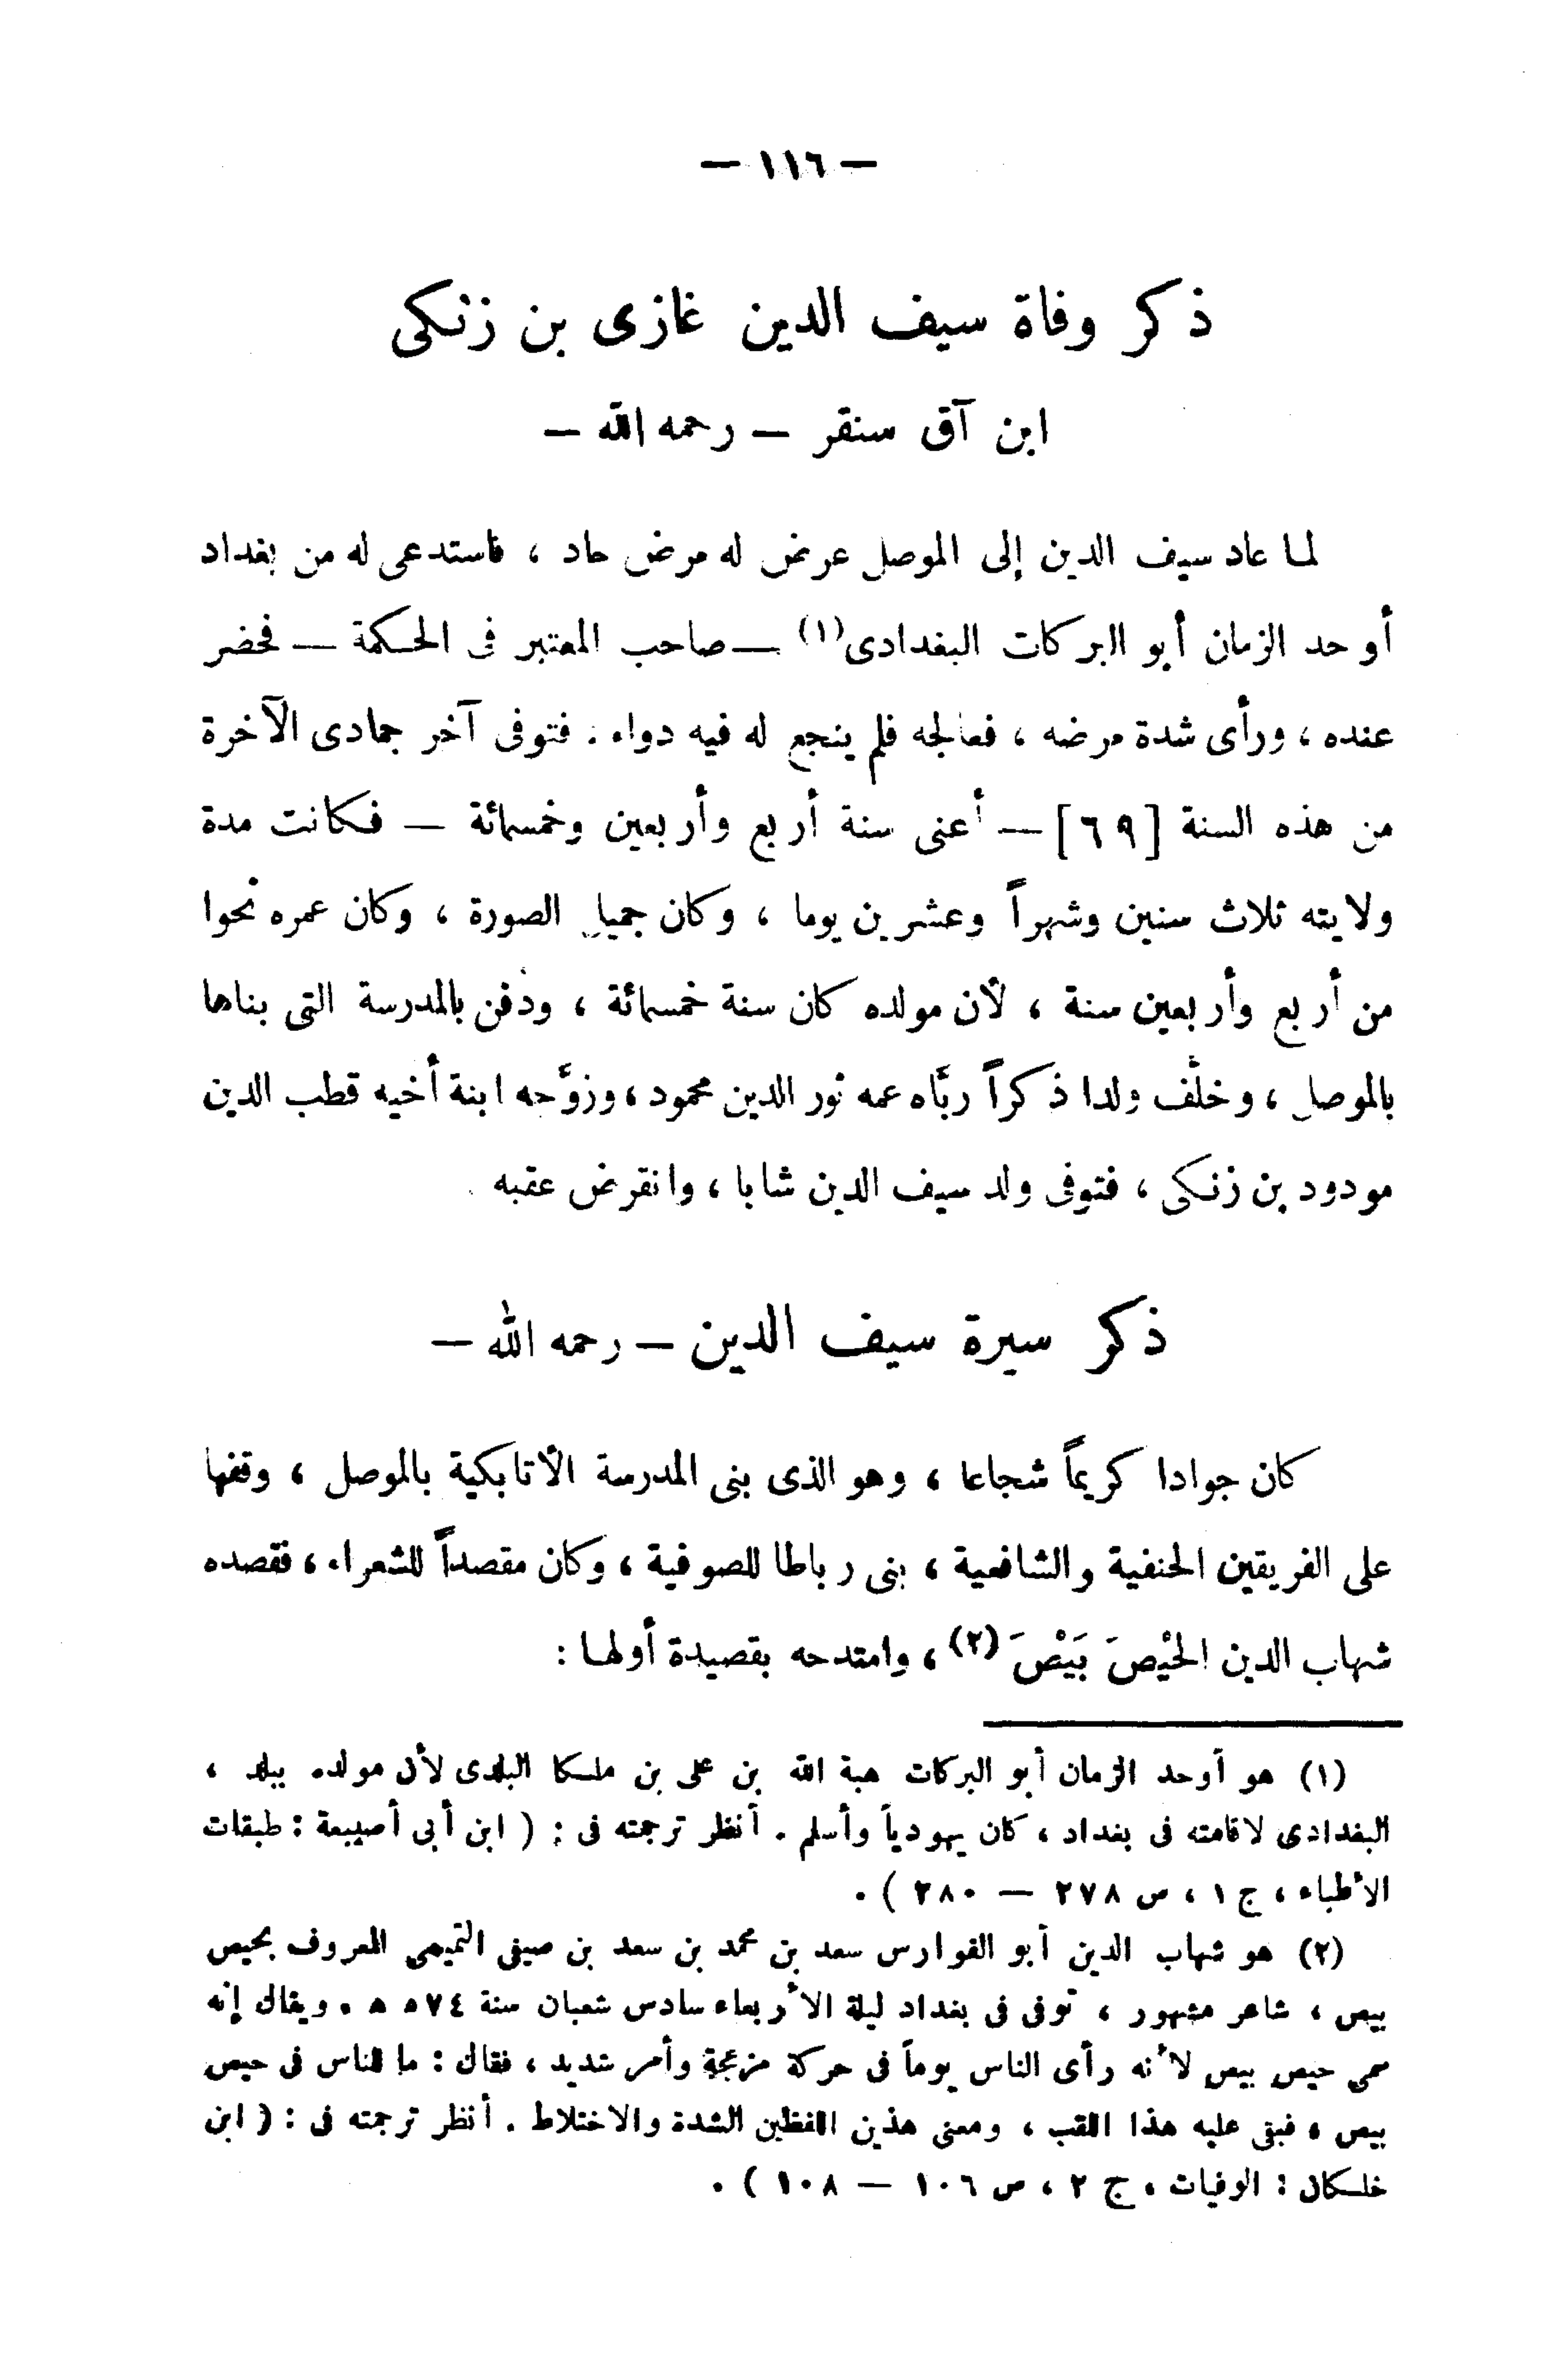 — ١١٦ —
ذكر وفاة سيف الدين غازى بن زنكى
ابن آق سنقر — رحمه الله —
لما عاد سيف الدين إلى الموصل عرض له مرض حاد ، فاستدعى له من بغداد
أوحد الزمان أبو البركات البغدادى(١) — صاحب المعتبر فى الحكمة — فحضر
عنده ، ورأى شدة مرضه ، فعالجه فلم ينجع له فيه دواء . فتوفى آخر جمادى الآخرة
من هذه السنة [٦٩] — أعنى سنة أربع وأربعين وخمسمائة — فكانت مدة
ولايته ثلاث سنين وشهراً وعشرين يوما ، وكان جميل الصورة ، وكان عمره نحوا
من أربع وأربعين سنة ، لأن مولده كان سنة خمسمائة ، ودُفن بالمدرسة التى بناها
بالموصل ، وخلَّف ولدا ذكراً ربَّاه عمه نور الدين محمود ، وزوَّجه ابنة أخيه قطب الدين
مودود بن زنكى ، فتوفى ولد سيف الدين شابا ، وانقرض عقبه .
ذكر سيرة سيف الدين — رحمه الله —
كان جوادا كريماً شجاعا ، وهو الذى بنى المدرسة الأتابكية بالموصل ، وقفها
على الفريقين الحنفية والشافعية ، بنى رباطا للصوفية ، وكان مقصداً للشعراء ، فقصده
شهاب الدين الحَيْصَ بَيْصَ (٢) ، وامتدحه بقصيدة أولها :
(١) هو أوحد الزمان أبو البركات هبة الله بن على بن ملكا البلدى لأن مولده ببلد ،
البغدادى لاقامته فى بغداد ، كان يهودياً وأسلم . أنظر ترجمته فى : ( ابن أبى أصيبعة : طبقات
الأطباء ، ج ١ ، ص ٢٧٨ — ٢٨٠ ) .
(٢) هو شهاب الدين أبو الفوارس سعد بن محمد بن سعد بن صيفى التميمى المعروف بحيص
بيص ، شاعر مشهور ، توفى فى بغداد ليلة الأربعاء سادس شعبان سنة ٥٧٤ هـ . ويقال إنه
سمى حيص بيص لأنه رأى الناس يوماً فى حركة مزعجة وأمر شديد ، فقال : ما للناس فى حيص
بيص ، فبقى عليه هذا اللقب ، ومعنى هذين اللفظين الشدة والاختلاط . أنظر ترجمته فى : ( ابن
خلكان : الوفيات ، ج ٢ ، ص ١٠٦ — ١٠٨ ) .